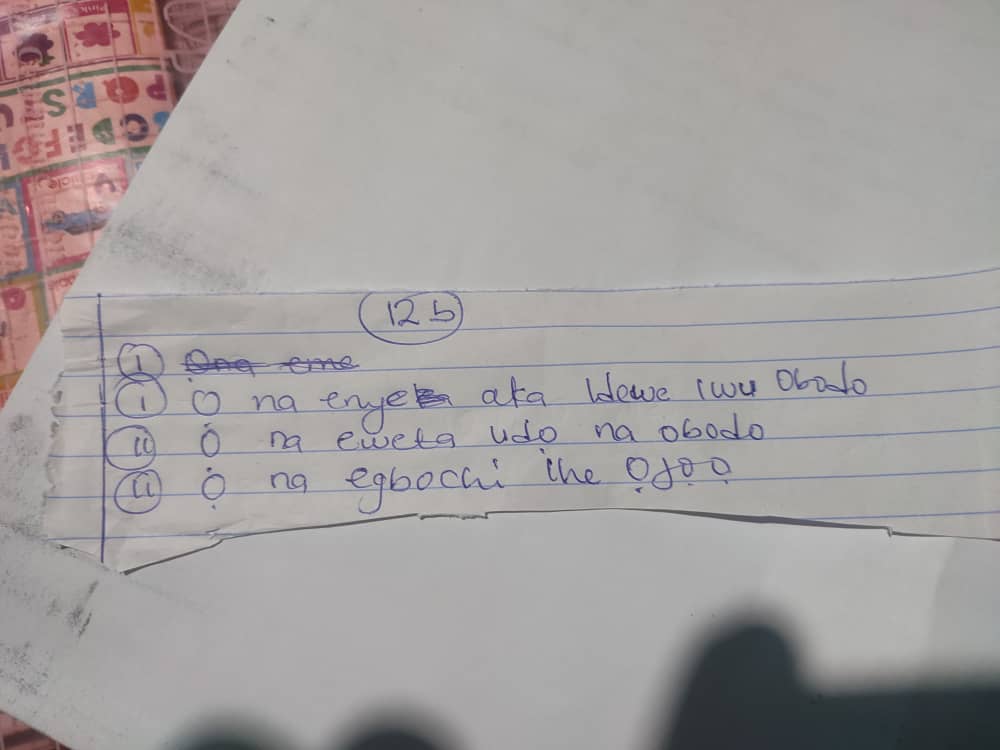 12b
i Ọna eme
i Ọ na enye aka idewe iwu Obodo
ii Ọ na eweta udo na obodo
iii Ọ na egbochi ihe Ọjọọ